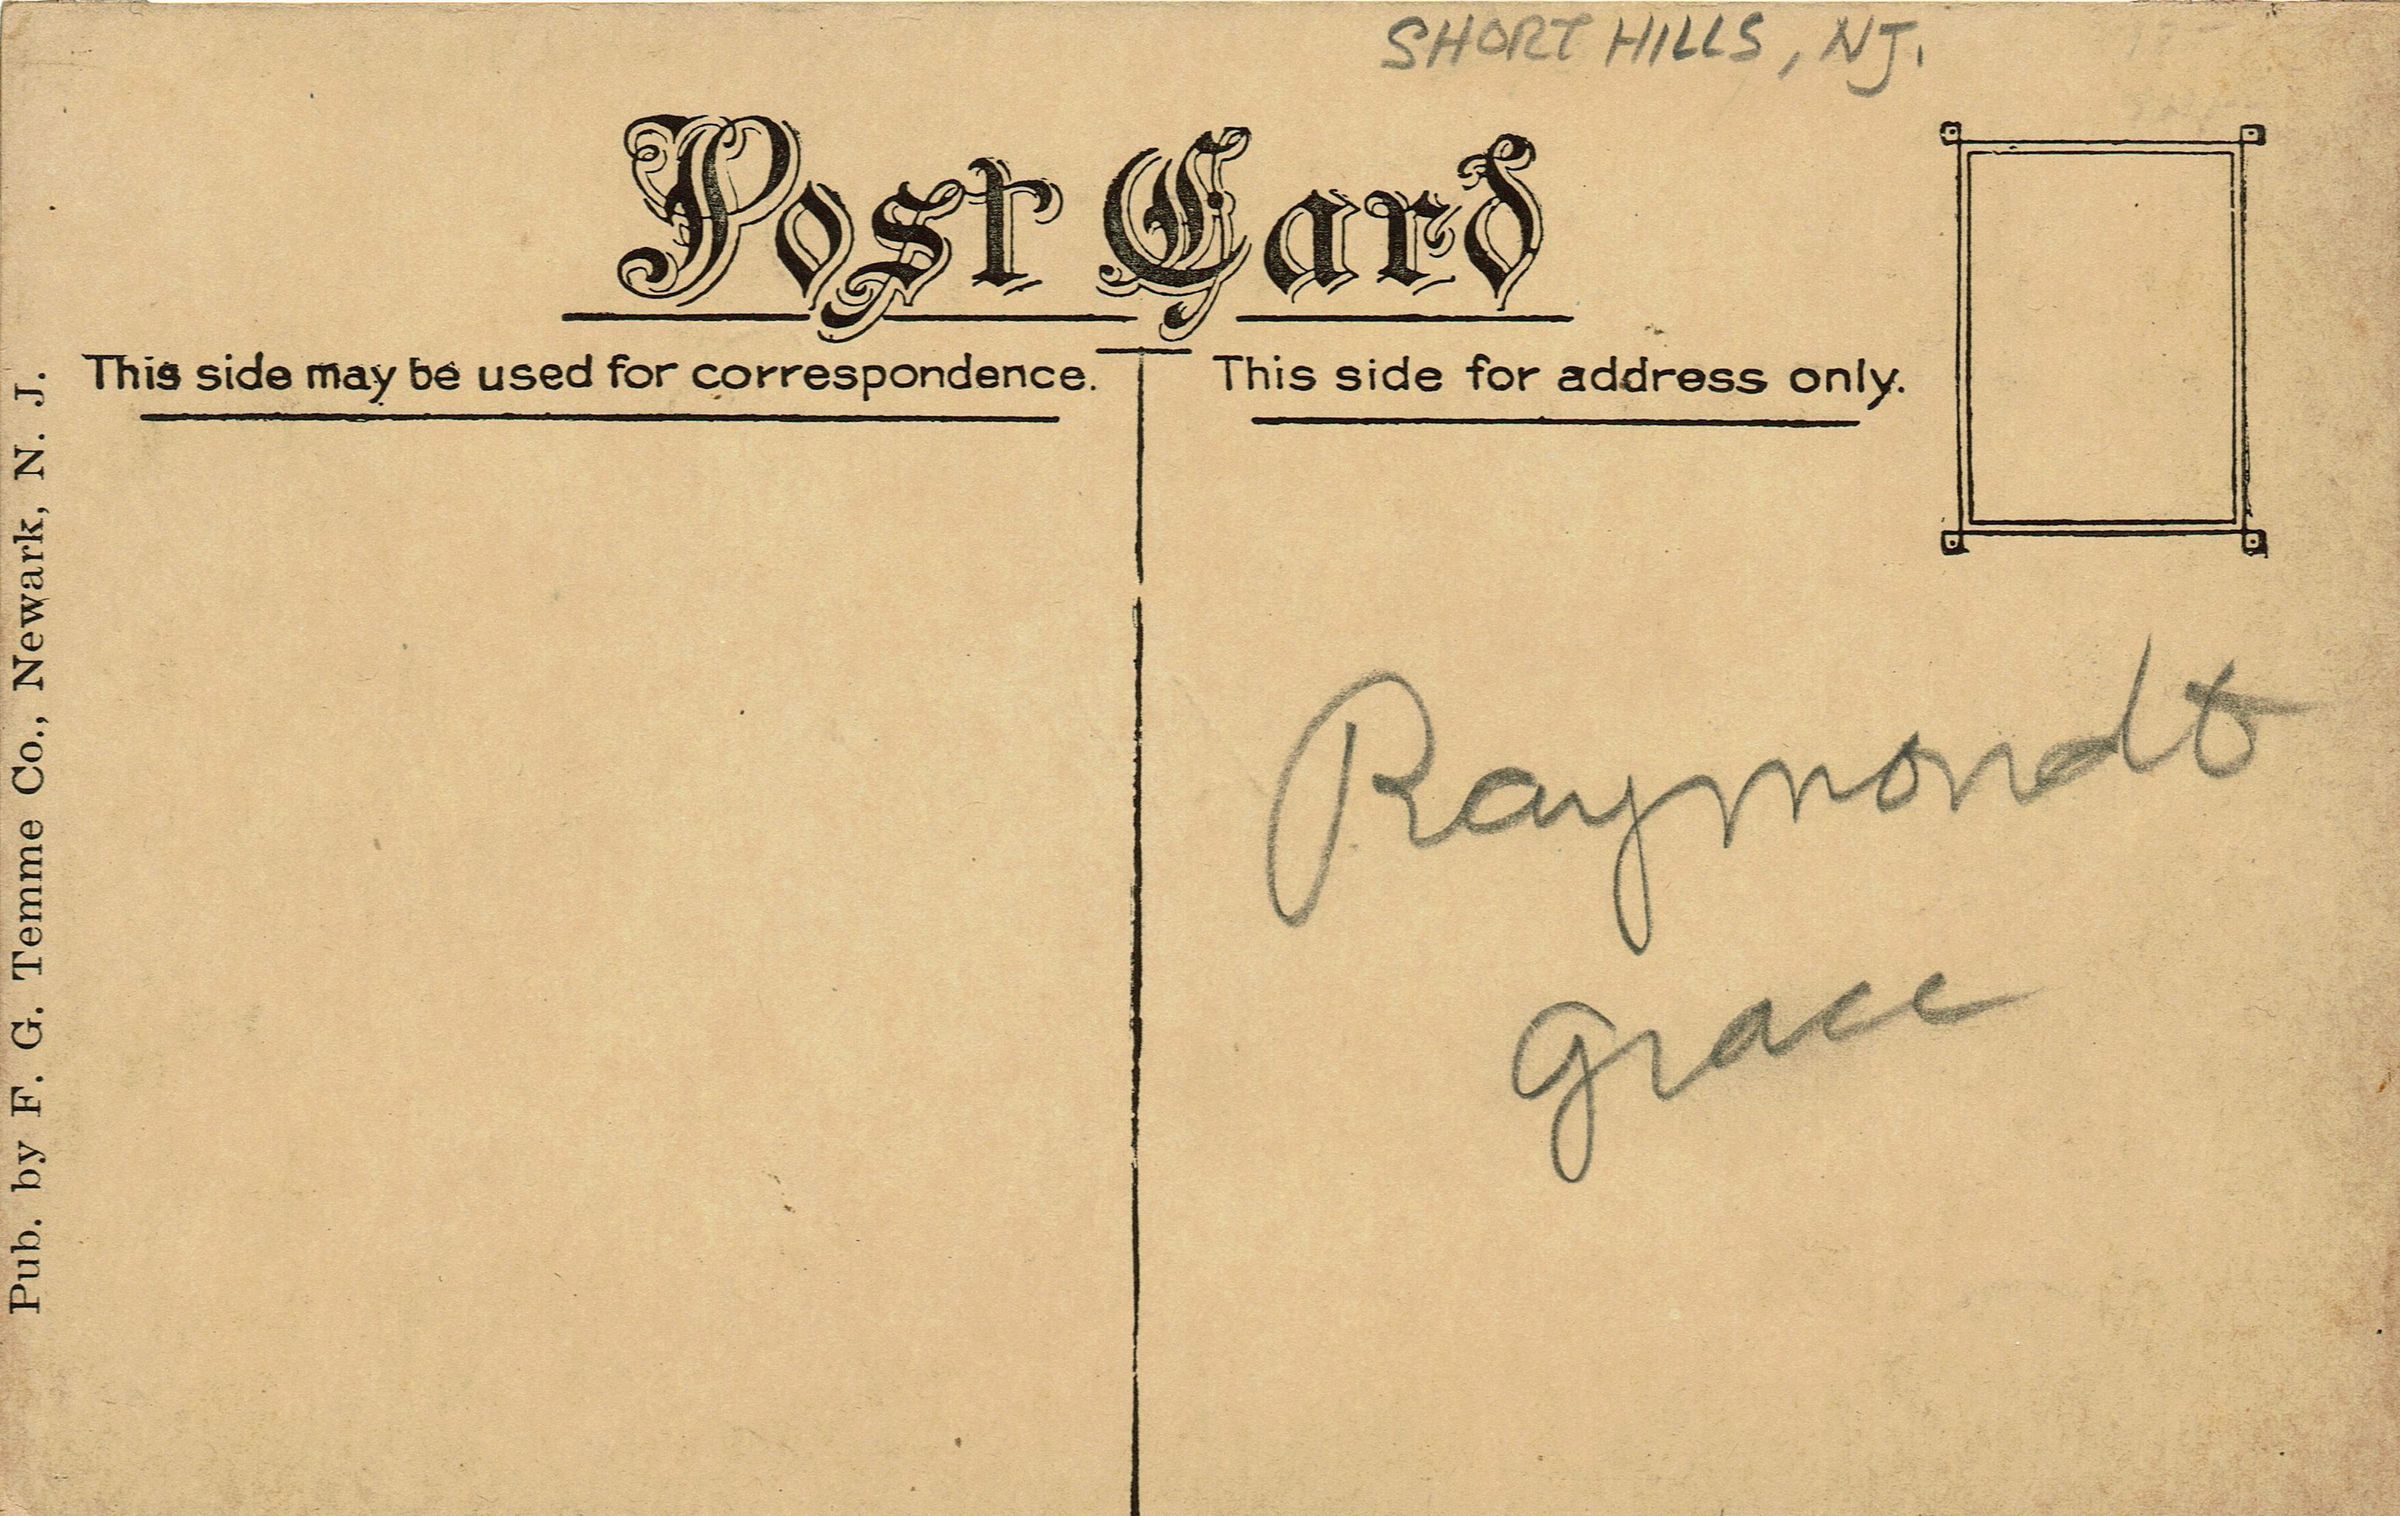 SHORT HILLS, NJ.
Post Card
This side may be used for correspondence.
This side for address only.
Pub. by F. G. Temme Co., Newark, N. J.
Raymondt
Grace